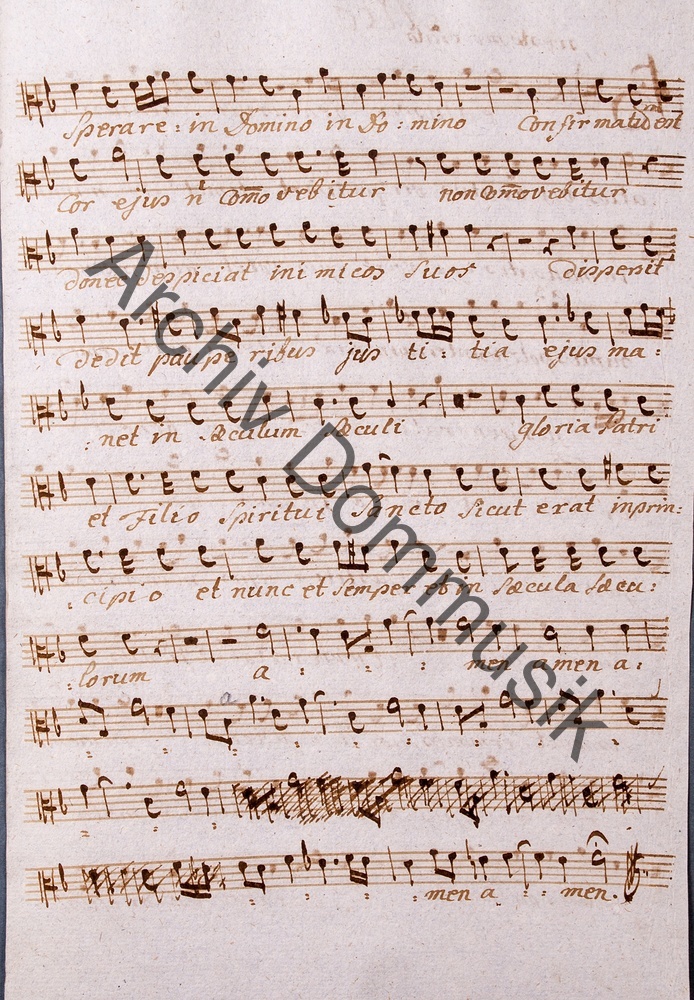 Sperare: in Domino in Do: mino Confirmatū est
Cor ejus n̄ Com̄ovebitur non Com̄ovebitur
donec despiciat inimicos suos dispersit
dedit pauperibus jus ti: tia ejus ma:
: net in Sæculum Sæculi gloria Patri
et Filio Spiritui Sancto Sicut erat inprin:
: cipio et nunc et Semper et in Sæcula Sæcu:
: lorum a : : : men amen a:
: men a : : men.
Archiv Dommusik